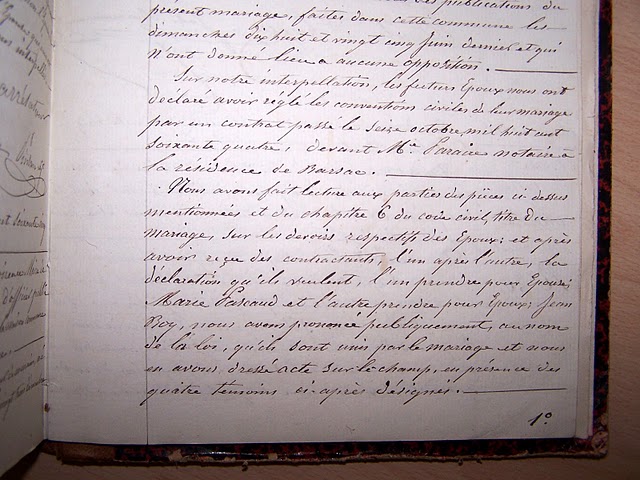 présent mariage, faites dans cette commune les
dimanches dix huit et vingt cinq Juin dernier et qui
n'ont donné lieu a aucune opposition.
Sur notre interpellation, les futurs Epoux nous ont
déclaré avoir réglé les conventions civiles de leur mariage
par un contrat passé le seize octobre, mil huit cent
soixante quatre, devant Me notaire à
la résidence de Barsac.
Nous avons fait lecture aux parties des pièces ci-dessus
mentionnées et du chapitre 6 du code civil, titre du
mariage, sur les devoirs respectifs des Epoux; et après
avoir reçu des contractants, l'un après l'autre, la
déclaration qu'ils veulent, l'un prendre pour Epouse,
Marie Pascaud et l'autre prendre pour Epoux, Jean
Boy, nous avons prononcé publiquement, au nom
de la loi, qu'ils sont unis par le mariage et nous
en avons dressé acte sur le champ, en présence des
quatre temoins ci-après désignés.
1º